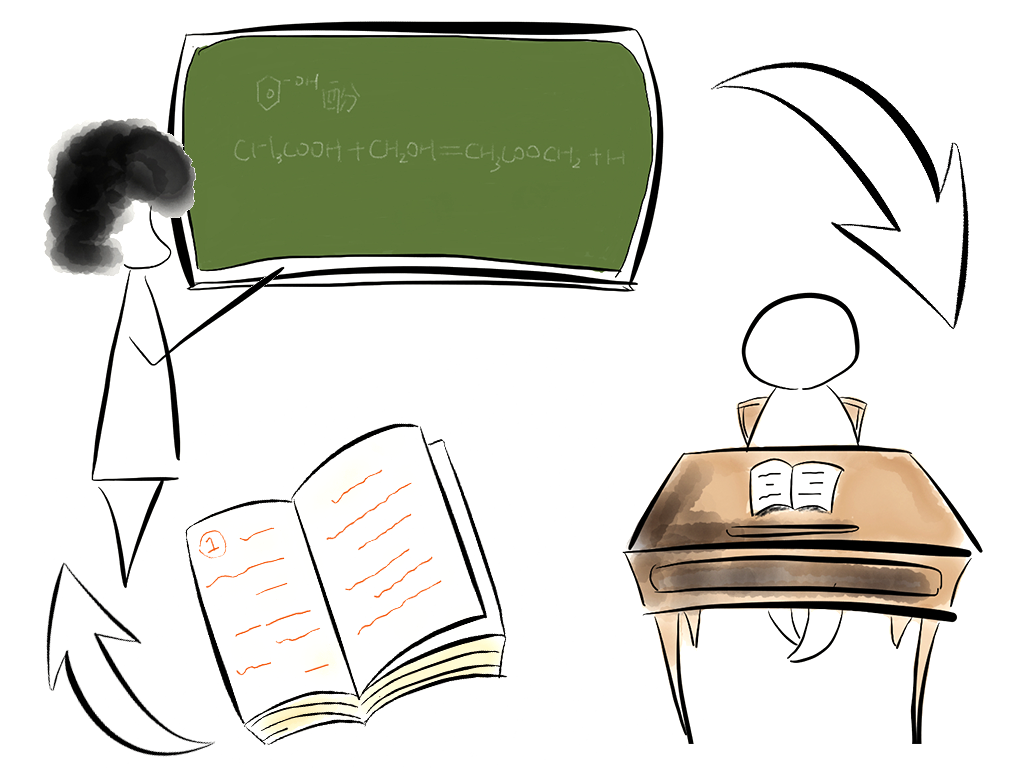 -OH 酚
CH₃COOH+CH₂OH=CH₃COOCH₂+H
1